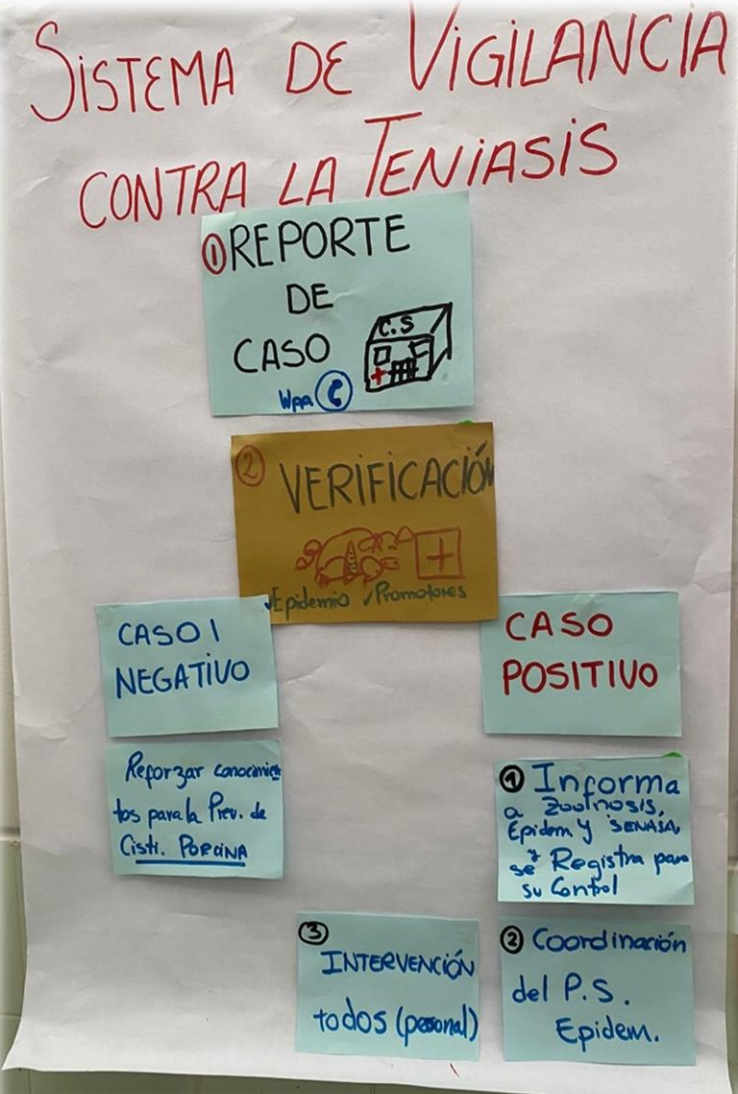 SISTEMA DE VIGILANCIA
CONTRA LA TENIASIS
① REPORTE
DE
CASO
C.S
Wpa
② VERIFICACIÓN
✓Epidemio ✓Promotores
CASO 1
NEGATIVO
CASO
POSITIVO
Reforzar conocimien
tos para la Prev. de
Cisti. PORCINA
① Informa
a Zootnosis,
Epidem y SENASA,
se Registra para
su Control
② Coordinación
del P.S.
Epidem.
③
INTERVENCIÓN
todos (personal)